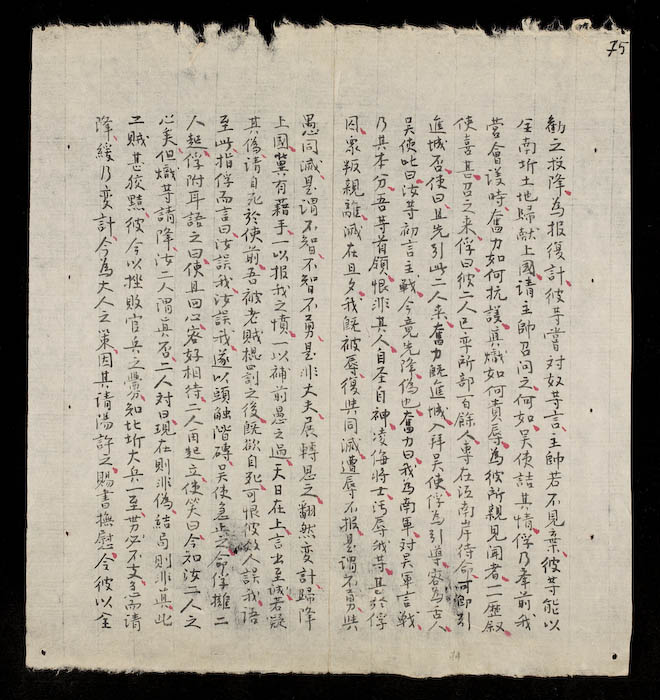 75
勸之投降為報復計彼等嘗対奴等言主帥若不見棄彼等能以
全南圻土地歸献上國請主帥召問之何如吳使詰其情俘乃牽前我
營會议時奮力如何抗議真熾如何責辱為彼所親見聞者一一歷叙
使喜甚召之来俘曰彼二人已率所部一百餘人專在江南岸待命可即引
進城否使曰且先引此二人来奮力旣進城入拜吳使俘為引導客為舌人
吳使叱曰汝等初言主戰今竟先降偽也奮力曰我為南軍対吳軍言戰
乃其本分吾等首領恨非其人自圣自神凌侮將士污辱我等甚於俘
囚众叛親離滅在旦夕我旣被辱復與同滅遭辱不报是謂不勇與
愚同滅是謂不智不智不勇是非大夫展轉思之翻然变計歸降
上國冀有藉手一以报我之憤一以補前愚之過天日在上言出至诚若疑
其偽请自死於使前吾被老賊楒罰之後旣欲自死可恨彼奴人誤我语
至此指俘而言曰汝誤我汝誤我遂以頭触階磚吳使急止之命俘攡二
人起俘附耳語之曰使且回心客好相待二人因起立使笑曰今知汝二人之
心矣但熾等請降汝二人謂真否二人对曰現在則非偽結局則非真此
二賊甚狡黠彼今以挫敗官兵之釁知北圻大兵一至势必不支急而请
降緩乃变計今為大人之策因其请陽許之賜書撫慰令彼以全